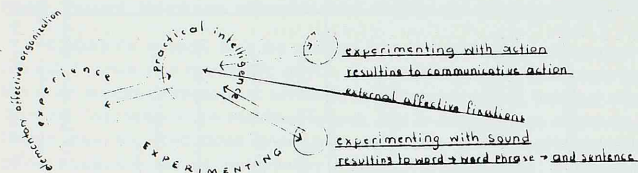 elementary affective organization
experience
practical intelligence
EXPERIMENTING
experimenting with action
resulting to communicative action
external affective fixations
experimenting with sound
resulting to word → word phrase → and sentence